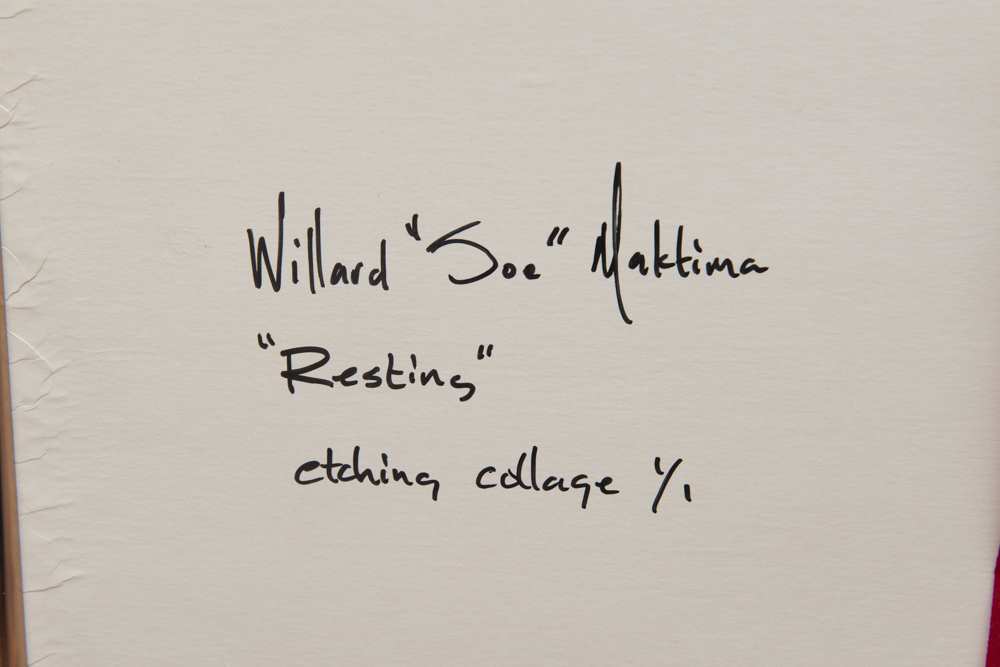 Willard "Joe" Maktima
"Resting"
etching collage 1/1